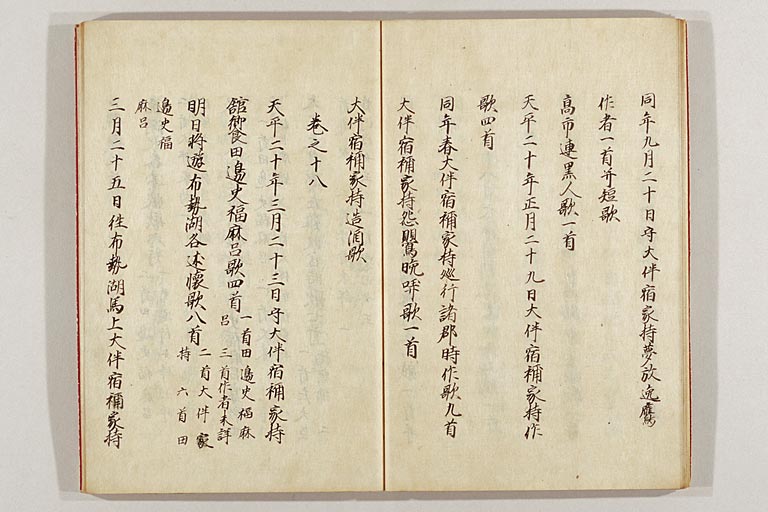 同年九月二十日守大伴宿家持夢放逸鷹
作者一首并短歌
高市連黒人歌一首
天平二十年正月二十九日大伴宿祢家持作
歌四首
同年春大伴宿祢家持巡行諸郡時作歌九首
大伴宿祢家持怨鶯晩哢歌一首
大伴宿祢家持造酒歌
巻之十八
天平二十年三月二十三日守大伴宿祢家持
館饗田邊史福麻呂歌四首 一首田邊史福麻
呂 三首作者未詳
明日将遊布勢湖各述懐歌八首 二首大伴家
持 六首田
邊史福
麻呂
三月二十五日徃布勢湖馬上大伴宿祢家持